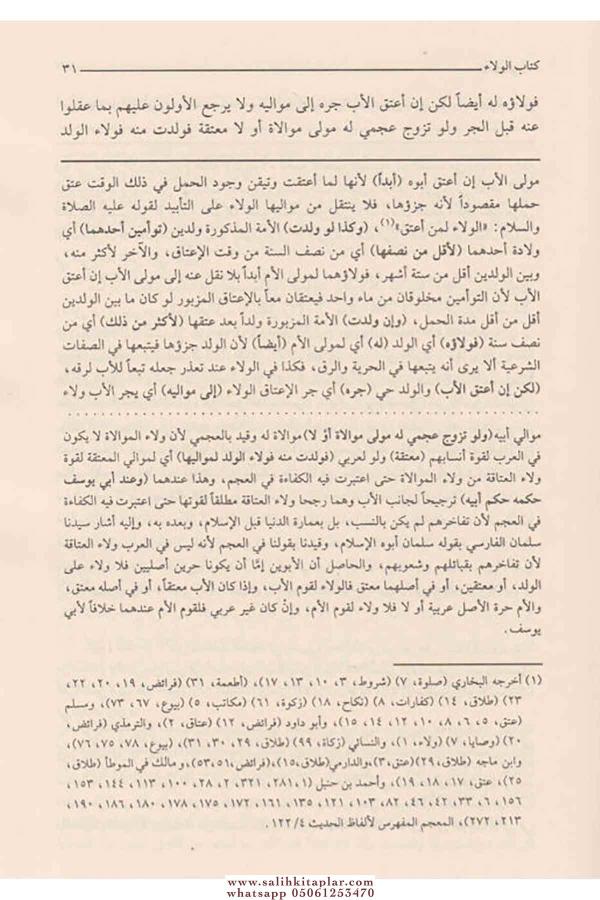 كتاب الولاء ٣١
فولاؤه له أيضاً لكن إن أعتق الأب جره إلى مواليه ولا يرجع الأولون عليهم بما عقلوا
عنه قبل الجر ولو تزوج عجمي له مولى موالاة أو لا معتقة فولدت منه فولاء الولد
مولى الأب إن أعتق أبوه (أبداً) لأنها لما أعتقت وتيقن وجود الحمل في ذلك الوقت عتق
حملها مقصوداً لأنه جزؤها، فلا ينتقل من مواليها الولاء على التأبيد لقوله عليه الصلاة
والسلام: «الولاء لمن أعتق»(١)، (وكذا لو ولدت) الأمة المذكورة ولدين (توأمين أحدهما) أي
ولادة أحدهما (لأقل من نصفها) أي من نصف السنة من وقت الإعتاق، والآخر لأكثر منه،
وبين الولدين أقل من ستة أشهر، فولاؤهما لمولى الأم أبداً بلا نقل عنه إلى مولى الأب إن أعتق
الأب لأن التوأمين مخلوقان من ماء واحد فيعتقان معاً بالإعتاق المزبور لو كان ما بين الولدين
أقل من أقل مدة الحمل، (وإن ولدت) الأمة المزبورة ولداً بعد عتقها (لأكثر من ذلك) أي من
نصف سنة (فولاؤه) أي الولد (له) أي لمولى الأم (أيضاً) لأن الولد جزؤها فيتبعها في الصفات
الشرعية ألا يرى أنه يتبعها في الحرية والرق، فكذا في الولاء عند تعذر جعله تبعاً للأب لرقه،
(لكن إن أعتق الأب) والولد حي (جره) أي جر الإعتاق الولاء (إلى مواليه) أي يجر الأب ولاء
موالي أبيه (ولو تزوج عجمي له مولى موالاة أو لا) موالاة له وقيد بالعجمي لأن ولاء الموالاة لا يكون
في العرب لقوة أنسابهم (معتقة) ولو لعربي (فولدت منه فولاء الولد لمواليها) أي لموالي المعتقة لقوة
ولاء العتاقة من ولاء الموالاة حتى اعتبرت فيه الكفاءة في العجم، وهذا عندهما (وعند أبي يوسف
حكمه حكم أبيه) ترجيحاً لجانب الأب وهما رجحا ولاء العتاقة مطلقاً لقوتها حتى اعتبرت فيه الكفاءة
في العجم لأن تفاخرهم لم يكن بالنسب، بل بعمارة الدنيا قبل الإسلام، وبعده به، وإليه أشار سيدنا
سلمان الفارسي بقوله سلمان أبوه الإسلام، وقيدنا بقولنا في العجم لأنه ليس في العرب ولاء العتاقة
لأن تفاخرهم بقبائلهم وشعوبهم، والحاصل أن الأبوين إمَّا أن يكونا حرين أصليين فلا ولاء على
الولد، أو معتقين، أو في أصلهما معتق فالولاء لقوم الأب، وإذا كان الأب معتقاً، أو في أصله معتق،
والأم حرة الأصل عربية أو لا فلا ولاء لقوم الأم، وإنْ كان غير عربي فلقوم الأم عندهما خلافاً لأبي
يوسف.
(١) أخرجه البخاري (صلوة، ٧) (شروط، ٣، ١٠، ١٣، ١٧)، (أطعمة، ٣١) (فرائض، ١٩، ٢٠، ٢٢،
٢٣) (طلاق، ١٤) (كفارات، ٨) (نكاح، ١٨) (زكوة، ٦١) (مكاتب، ٥) (بيوع، ٦٧، ٧٣)، ومسلم
(عتق، ٥، ٦، ٨، ١٠، ١٢، ١٤، ١٥)، وأبو داود (فرائض، ١٢) (عتاق، ٢)، والترمذي (فرائض،
٢٠) (وصايا، ٧) (ولاء، ١)، والنسائي (زكاة، ٩٩) (طلاق، ٢٩، ٣٠، ٣١)، (بيوع، ٧٨، ٧٥، ٧٦)،
وابن ماجه (طلاق، ٢٩) (عتق،٣)، والدارمي (طلاق،١٥)، (فرائض،٥١،٥٣)، ومالك في الموطأ (طلاق،
٢٥)، عتق، ١٧، ١٨، ١٩)، وأحمد بن حنبل (١،٢٨١، ٣٢١، ٢، ٢٨، ١٠٠، ١١٣، ١٤٤، ١٥٣،
١٥٦، ٦، ٣٣، ٤٢، ٤٦، ٨٢، ١٠٣، ١٢١، ١٣٥، ١٦١، ١٧٢، ١٧٥، ١٧٨، ١٨٠، ١٨٦، ١٩٠،
٢١٣، ٢٧٢)، المعجم المفهرس لألفاظ الحديث ١٢٢/٤.
www.salihkitaplar.com
whatsapp 05061253470